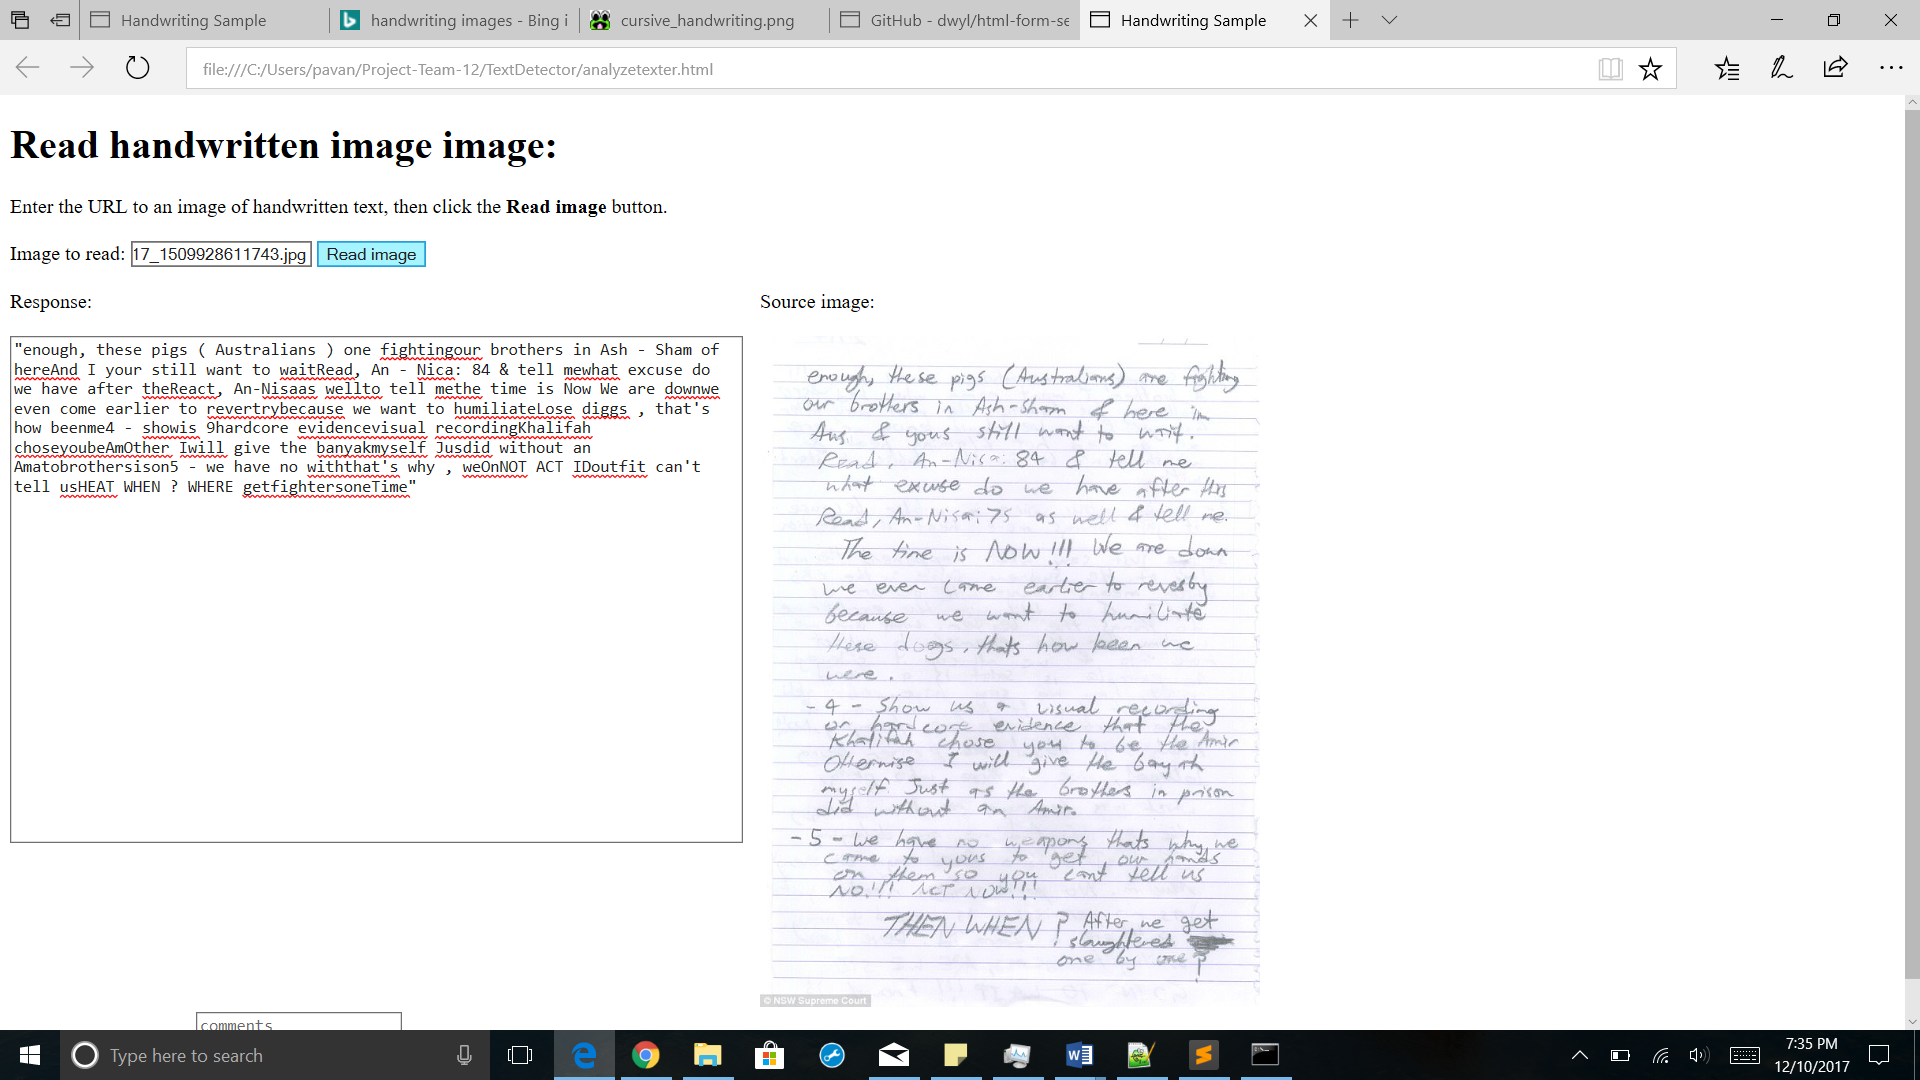 Handwriting Sample
handwriting images - Bing i
cursive_handwriting.png
GitHub - dwyl/html-form-se
Handwriting Sample
file:///C:/Users/pavan/Project-Team-12/TextDetector/analyzetexter.html
Read handwritten image image:
Enter the URL to an image of handwritten text, then click the Read image button.
Image to read: 17_1509928611743.jpg Read image
Response:
"enough, these pigs ( Australians ) one fightingour brothers in Ash - Sham of
hereAnd I your still want to waitRead, An - Nica: 84 & tell mewhat excuse do
we have after theReact, An-Nisaas wellto tell methe time is Now We are downwe
even come earlier to revertrybecause we want to humiliateLose diggs , that's
how beenme4 - showis 9hardcore evidencevisual recordingKhalifah
choseyoubeAmOther Iwill give the banyakmyself Jusdid without an
Amatobrothersison5 - we have no withthat's why , weOnNOT ACT IDoutfit can't
tell usHEAT WHEN ? WHERE getfightersoneTime"
Source image:
enough, these pigs (Australians) are fighting
our brothers in Ash-Sham & here in
Aus & yous still want to wait.
Read, An-Nisa: 84 & tell me
what excuse do we have after this
Read, An-Nisa: 75 as well & tell me.
The time is NOW!!! We are down
we even came earlier to revesby
because we want to humiliate
these doogs, thats how keen we
were.
- 4 - Show us a visual recording
or hardcore evidence that the
Khalifah chose you to be the Amir
Otherwise I will give the bayah
myself. Just as the brothers in prison
did without an Amir.
- 5 - We have no weapons thats why we
came to yous to get our hands
on them so you cant tell us
NO!!! ACT NOW!!!
THEN WHEN? After we get
slaughtered
one by one?
© NSW Supreme Court
comments
Type here to search
7:35 PM
12/10/2017